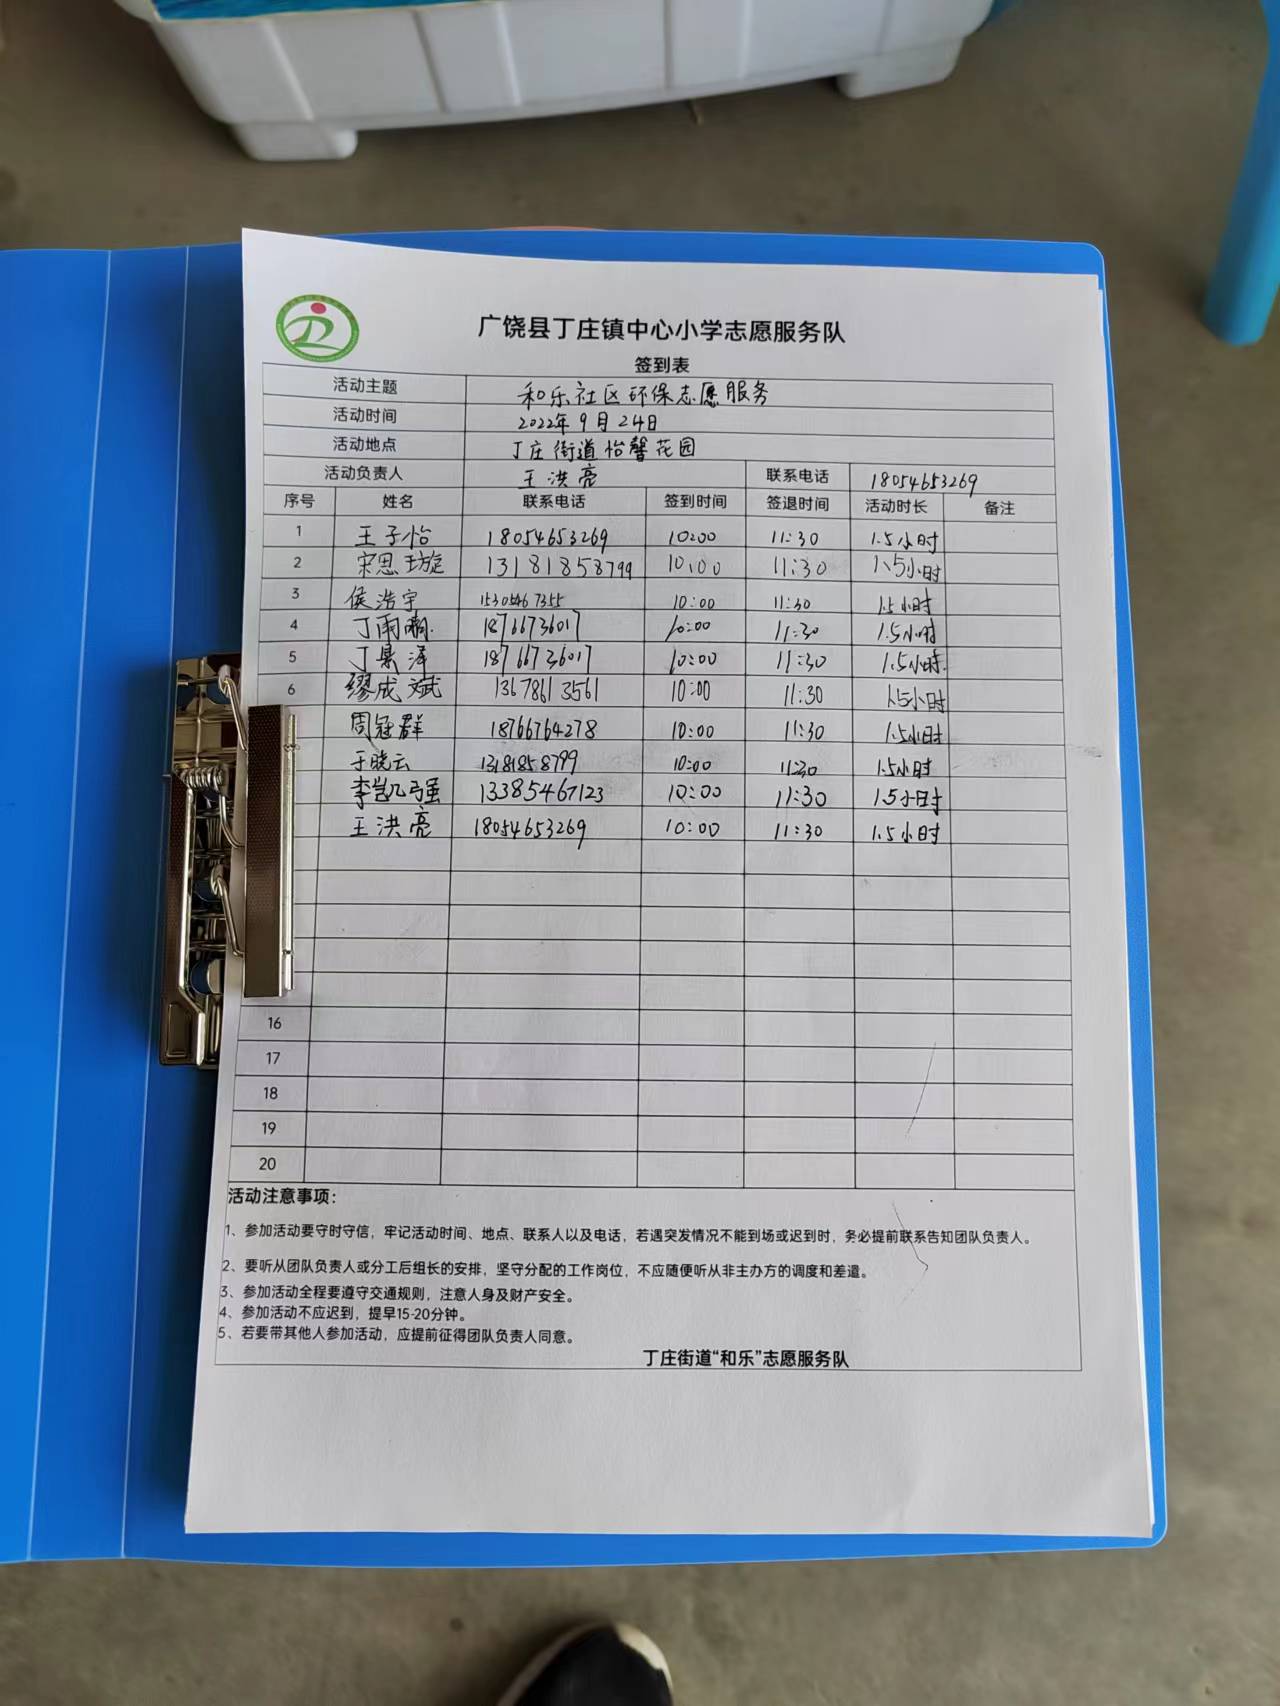 广饶县丁庄镇中心小学志愿服务队
签到表
活动主题 和乐社区环保志愿服务
活动时间 2022年9月24日
活动地点 丁庄街道怡馨花园
活动负责人 王洪亮 联系电话 18054653269
序号 姓名 联系电话 签到时间 签退时间 活动时长 备注
1 王子怡 18054653269 10:00 11:30 1.5小时
2 宋思璇 13181858799 10:00 11:30 1.5小时
3 侯浩宇 15305467355 10:00 11:30 1.5小时
4 丁雨 18766736017 10:00 11:30 1.5小时
5 丁泽 18766736017 10:00 11:30 1.5小时
6 缪成斌 13678613561 10:00 11:30 1.5小时
周冠群 18766764278 10:00 11:30 1.5小时
于晓云 13181858799 10:00 11:30 1.5小时
李凯强 13385467123 10:00 11:30 1.5小时
王洪亮 18054653269 10:00 11:30 1.5小时
16
17
18
19
20
活动注意事项：
1、参加活动要守时守信，牢记活动时间、地点、联系人以及电话，若遇突发情况不能到场或迟到时，务必提前联系告知团队负责人。
2、要听从团队负责人或分工后组长的安排，坚守分配的工作岗位，不应随便听从非主办方的调度和差遣。
3、参加活动全程要遵守交通规则，注意人身及财产安全。
4、参加活动不应迟到，提早15-20分钟。
5、若要带其他人参加活动，应提前征得团队负责人同意。
丁庄街道“和乐”志愿服务队